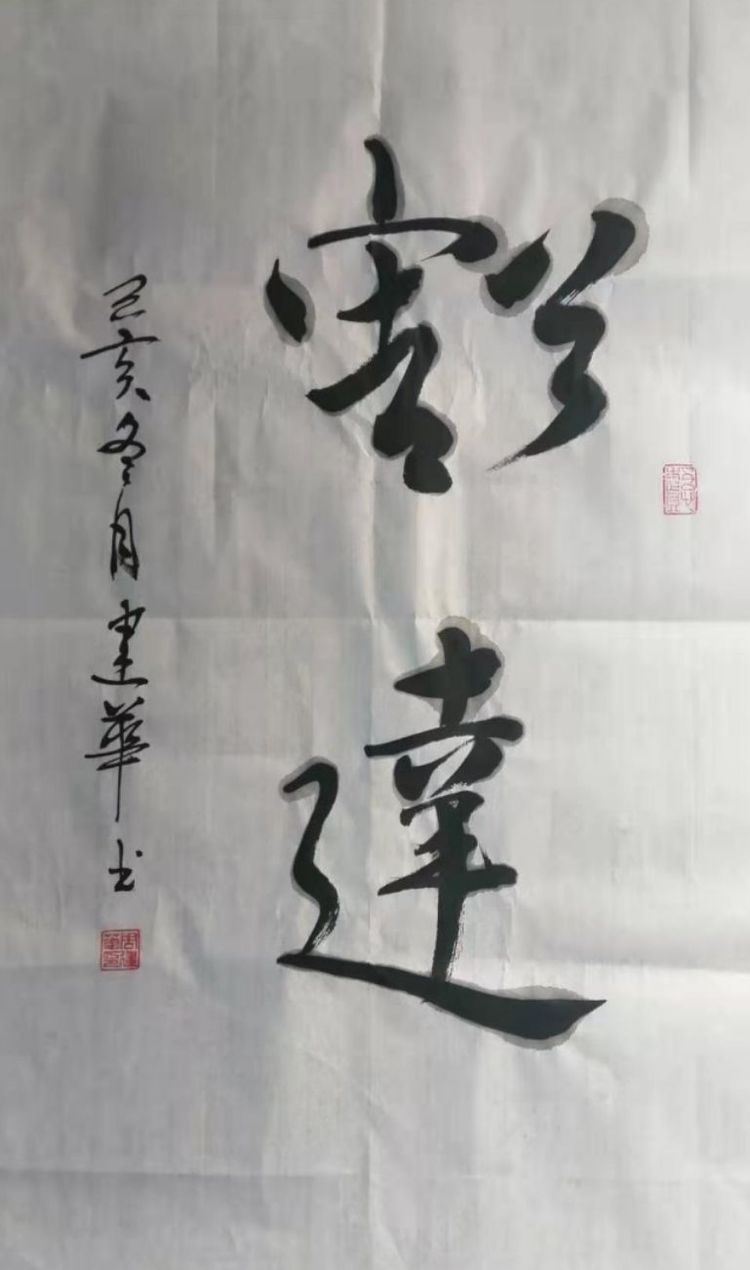 豁達
己亥冬月建華书